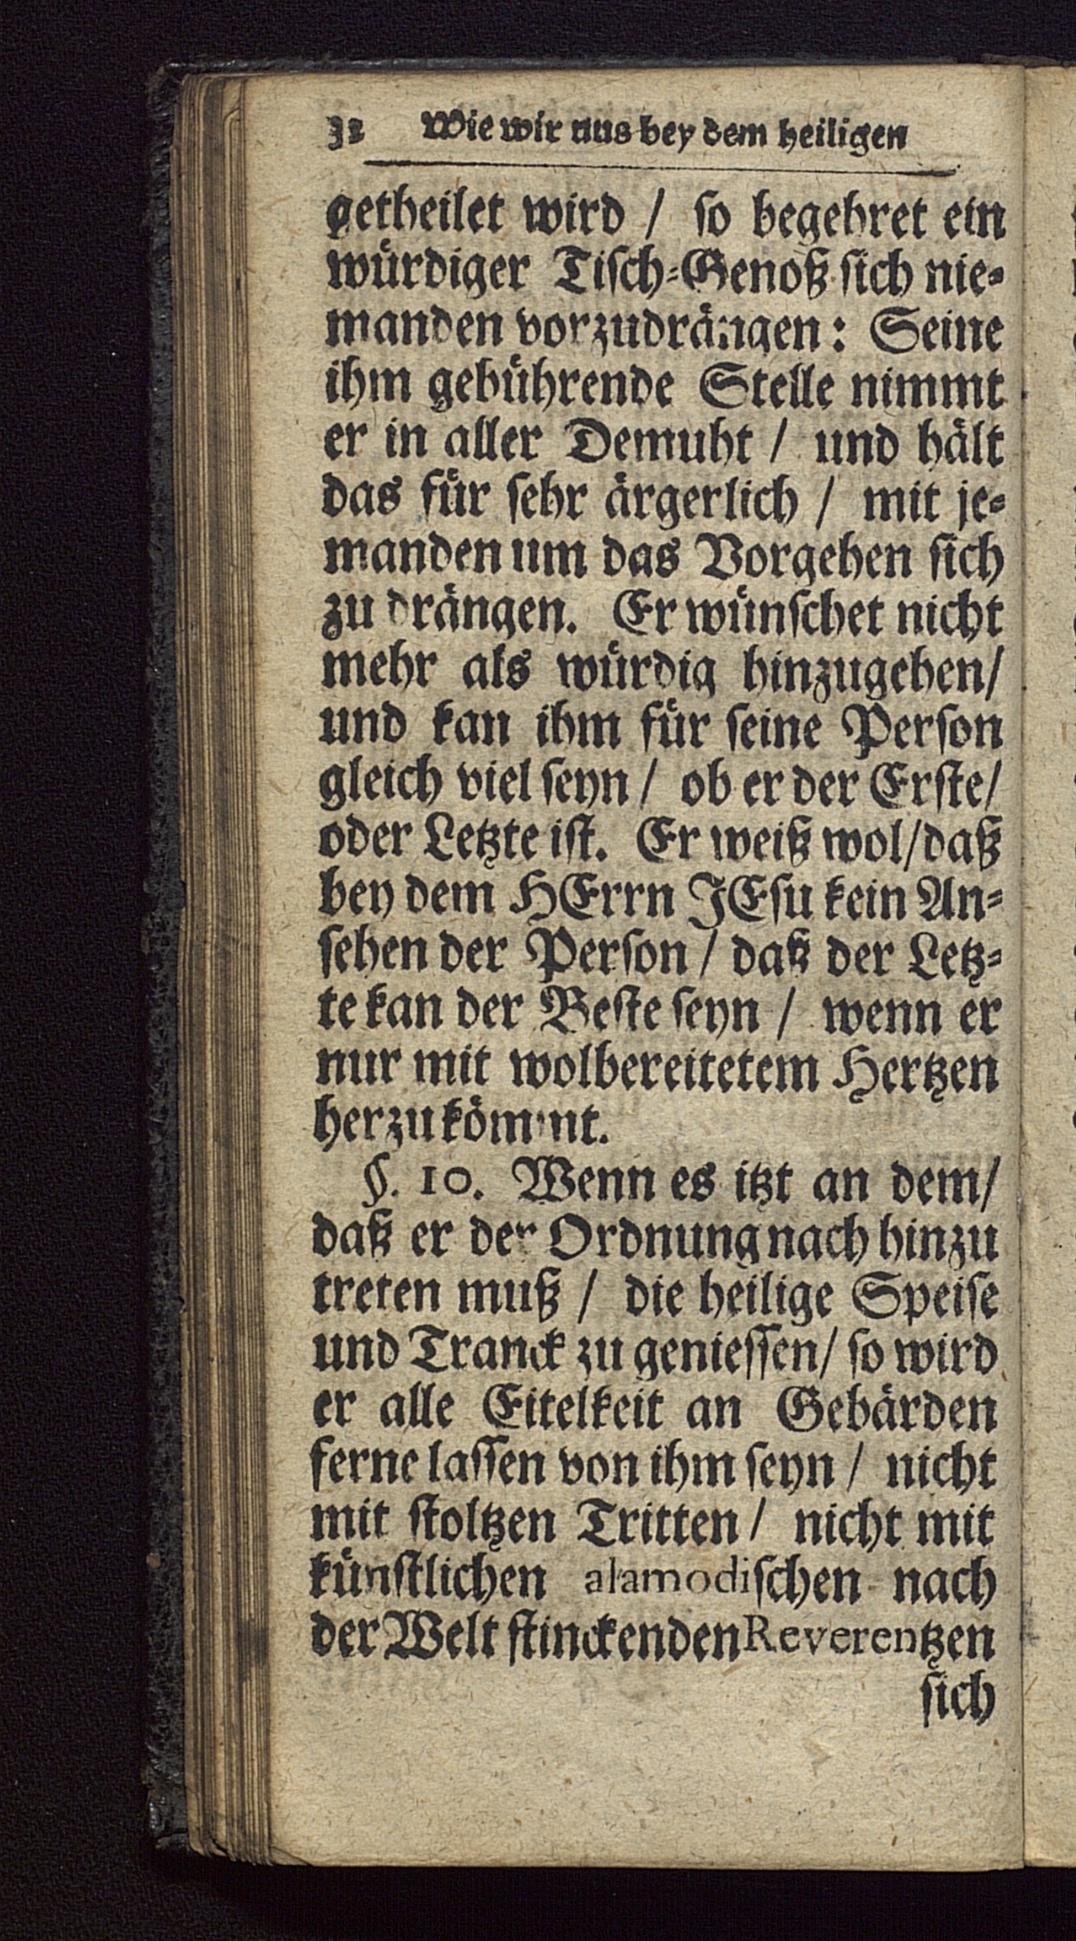 32 Wie wir uns bey dem heiligen
getheilet wird / so begehret ein
würdiger Tisch-Genoß sich nie-
manden vorzudrängen: Seine
ihm gebührende Stelle nimmt
er in aller Demuht / und hält
das für sehr ärgerlich / mit je-
manden um das Vorgehen sich
zu drängen. Er wünschet nicht
mehr als würdig hinzugehen/
und kan ihm für seine Person
gleich viel seyn / ob er der Erste/
oder Letzte ist. Er weiß wol/daß
bey dem HErrn JEsu kein An-
sehen der Person / daß der Letz-
te kan der Beste seyn / wenn er
nur mit wolbereitetem Hertzen
herzukömmt.
§. 10. Wenn es itzt an dem/
daß er der Ordnung nach hinzu
treten muß / die heilige Speise
und Tranck zu geniessen/ so wird
er alle Eitelkeit an Gebärden
ferne lassen von ihm seyn / nicht
mit stoltzen Tritten / nicht mit
künstlichen alamodischen nach
der Welt stinckenden Reverentzen
sich